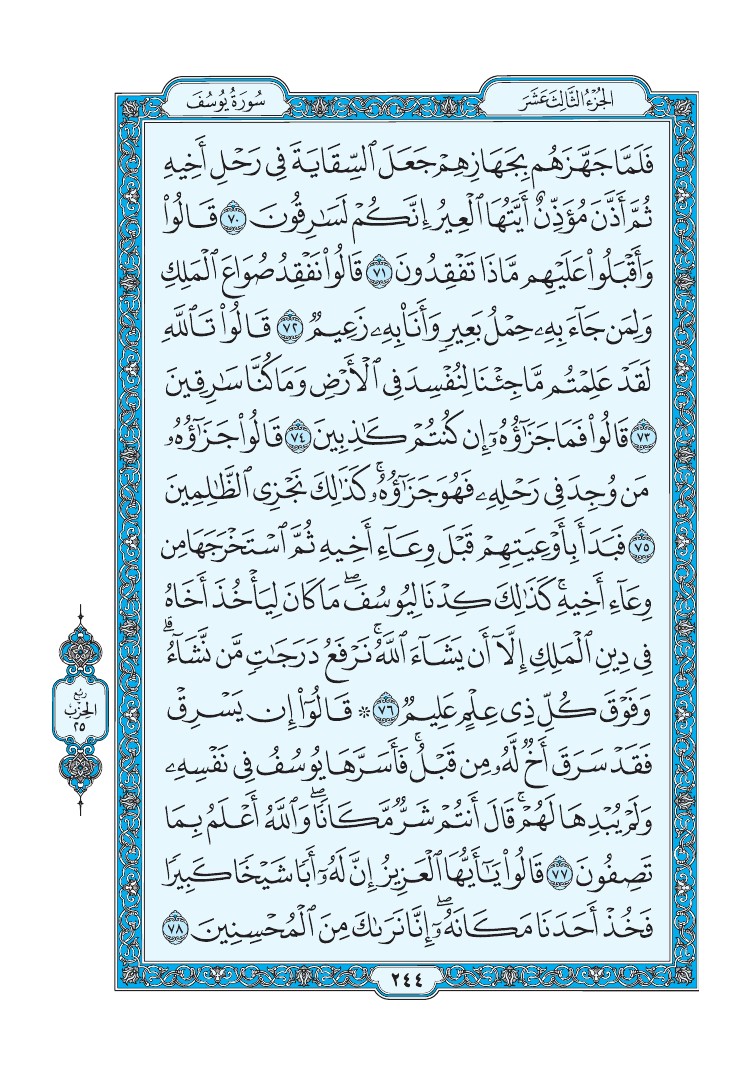 الجُزْءُ الثَّالِثَ عَشَرَ
سُورَةُ يُوسُفَ
فَلَمَّا جَهَّزَهُم بِجَهَازِهِمْ جَعَلَ ٱلسِّقَايَةَ فِى رَحْلِ أَخِيهِ
ثُمَّ أَذَّنَ مُؤَذِّنٌ أَيَّتُهَا ٱلْعِيرُ إِنَّكُمْ لَسَٰرِقُونَ ٧٠ قَالُوا۟
وَأَقْبَلُوا۟ عَلَيْهِم مَّاذَا تَفْقِدُونَ ٧١ قَالُوا۟ نَفْقِدُ صُوَاعَ ٱلْمَلِكِ
وَلِمَن جَآءَ بِهِۦ حِمْلُ بَعِيرٍ وَأَنَا۠ بِهِۦ زَعِيمٌ ٧٢ قَالُوا۟ تَٱللَّهِ
لَقَدْ عَلِمْتُم مَّا جِئْنَا لِنُفْسِدَ فِى ٱلْأَرْضِ وَمَا كُنَّا سَٰرِقِينَ
٧٣ قَالُوا۟ فَمَا جَزَٰٓؤُهُۥٓ إِن كُنتُمْ كَٰذِبِينَ ٧٤ قَالُوا۟ جَزَٰٓؤُهُۥ
مَن وُجِدَ فِى رَحْلِهِۦ فَهُوَ جَزَٰٓؤُهُۥ ۚ كَذَٰلِكَ نَجْزِى ٱلظَّٰلِمِينَ
٧٥ فَبَدَأَ بِأَوْعِيَتِهِمْ قَبْلَ وِعَآءِ أَخِيهِ ثُمَّ ٱسْتَخْرَجَهَا مِن
وِعَآءِ أَخِيهِ ۚ كَذَٰلِكَ كِدْنَا لِيُوسُفَ ۖ مَا كَانَ لِيَأْخُذَ أَخَاهُ
فِى دِينِ ٱلْمَلِكِ إِلَّآ أَن يَشَآءَ ٱللَّهُ ۚ نَرْفَعُ دَرَجَٰتٍ مَّن نَّشَآءُ ۗ
وَفَوْقَ كُلِّ ذِى عِلْمٍ عَلِيمٌ ٧٦ ۞ قَالُوٓا۟ إِن يَسْرِقْ
فَقَدْ سَرَقَ أَخٌ لَّهُۥ مِن قَبْلُ ۚ فَأَسَرَّهَا يُوسُفُ فِى نَفْسِهِۦ
وَلَمْ يُبْدِهَا لَهُمْ ۚ قَالَ أَنتُمْ شَرٌّ مَّكَانًا ۖ وَٱللَّهُ أَعْلَمُ بِمَا
تَصِفُونَ ٧٧ قَالُوا۟ يَٰٓأَيُّهَا ٱلْعَزِيزُ إِنَّ لَهُۥٓ أَبًا شَيْخًا كَبِيرًا
فَخُذْ أَحَدَنَا مَكَانَهُۥٓ ۖ إِنَّا نَرَىٰكَ مِنَ ٱلْمُحْسِنِينَ ٧٨
رُبْع
الحِزْب
٢٥
٢٤٤